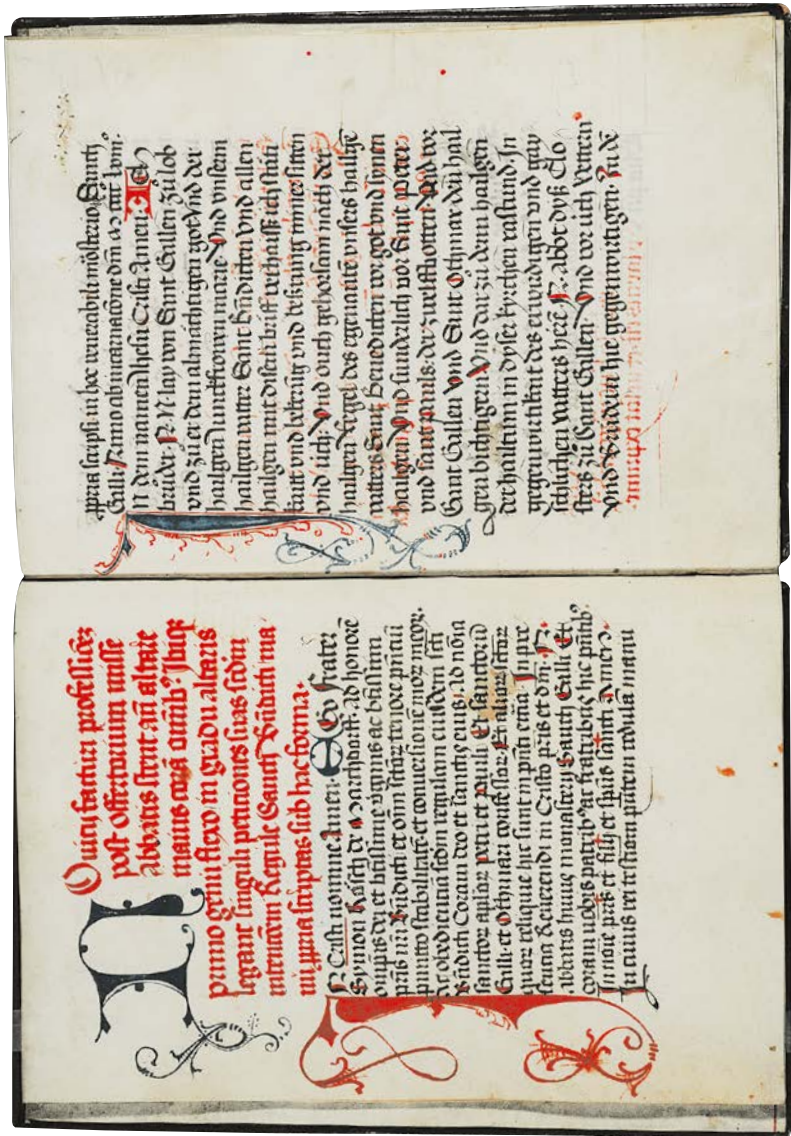 NOuicij fratres professuri
post offertorium misse
abbatis stent an altare
primo genu flexo in gradu altaris
legant singuli peticiones suas scdm
Regule Sancti Bndicti ma
nu ppria scriptas sub hac forma.
IN Cristi nomine Amen. EGo frater
Symon Rösch de ad honorē
omptis dei et btissime virginis ac btissimi
pris nri Bndicti et omn sctor tenore pntiu
pmitto stabilitatē et conuersionē mor meor.
Et obedientiā scdm regulam eiusdem scti
Bndicti Coram deo et sanctis eius. Ad noia
sanctor aplor petri et pauli Et sanctorū
Galli et Othmari confessor Et
quor reliquie hic sunt in pnti ecca. In pre
sentia Reuerendi in Cristo pris et dni. N.
Abbatis huius monasterij Sancti Galli Et
coram uobis patrib9 ac fratribus hic pntib9
In noie pris et filij et spus sancti Amen.
In cuius rei testimoniū pntem cedulā manu
ppria scripsi in hoc venerabili mōsterio Sancti
Galli Anno ab incarnacōne dni
IN dem namen Jhesu Cristi Amen. Ich
brüder N N lay von Sant Gallen zů lob
vnd zů er dem almächtigen got Vnd der
hailgen Junckfrowen marie Vnd vnserm
hailgen vatter Sant bndicten vnd allen
hailgen mit disem brieff verhaiss ich stäti
kait vnd bekerūg vnd besserung miner sitten
vnd Vnd ouch gehorsam nach der
hailgen Regel des egenantē vnsers hailgē
vatters Sant Benedicten vor got vnd sinen
hailgen Vnd sunderlich vor Sant peter
vnd sant pauls. der zwelffbotten Vnd vor
Sant Gallen vnd Sant Othmar den hail
gen bichtigern Vnd dar zů dem hailgen
der hailtum in dyser kyrchen rastand. In
gegenwirtikait des erwirdigen vnd gay
schlichen vatters herr N. abbt dyß Clo
sters zů Sant Gallen Vnd vor üch vettern
vnd Brüdern hie gegenwirtigen. In dē